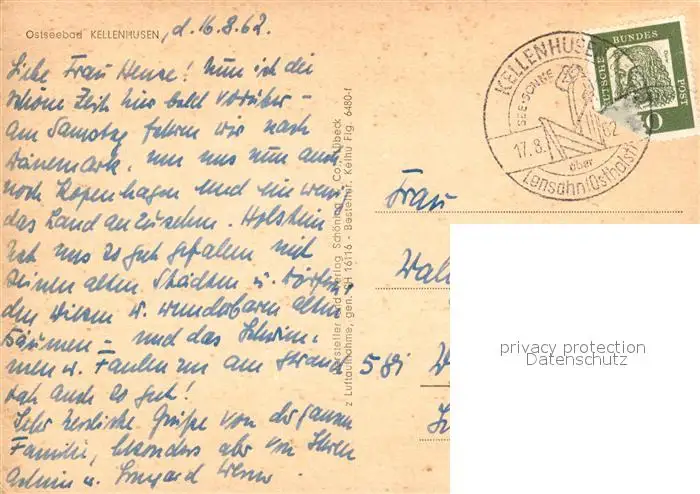 Ostseebad KELLENHUSEN, d. 16.8.62.
Liebe Frau Henze! Nun ist die
schöne Zeit hier bald vorüber –
am Samstag fahren wir nach
Dänemark, um uns nun auch
noch Kopenhagen und ein wenig
das Land anzusehen. Holstein
hat uns so gut gefallen mit
seinen alten Städten u. Dörfern,
den Wiesen u. wunderbaren alten
Bäumen – und das Schwim-
men u. Faulen zen am Strand
tat auch so gut!
Sehr herzliche Grüße von der ganzen
Familie, besonders aber von Ihren
u. Irmgard
Hersteller und Verlag Schöning & Co., Lübeck
z Luftaufnahme, gen. SH 16116 - Bestellnr. Kelhu Fig. 6480-f
KELLENHUSEN
SEE-SONNE
17.8. 62
über
Lensahn (Ostholst)
DEUTSCHE BUNDES POST
Frau
Wal
581 W
privacy protection
Datenschutz